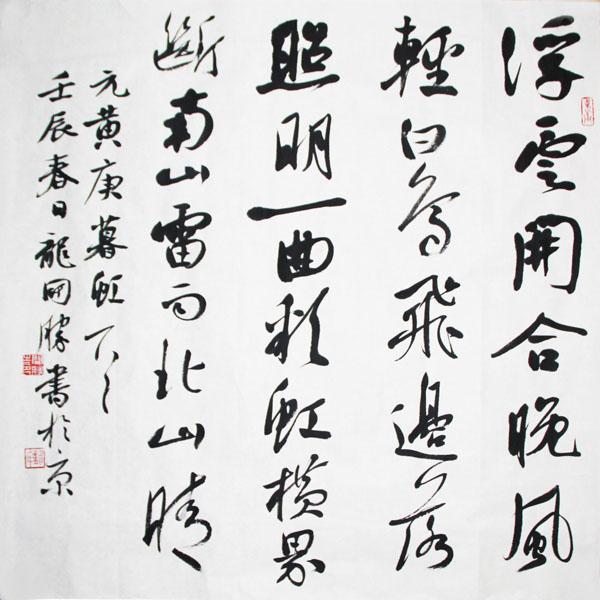 浮雲開合晚風
輕白鳥飛邊落
照明一曲彩虹橫界
斷南山雷雨北山晴
元黃庚暮虹
壬辰春日龍開勝書於京